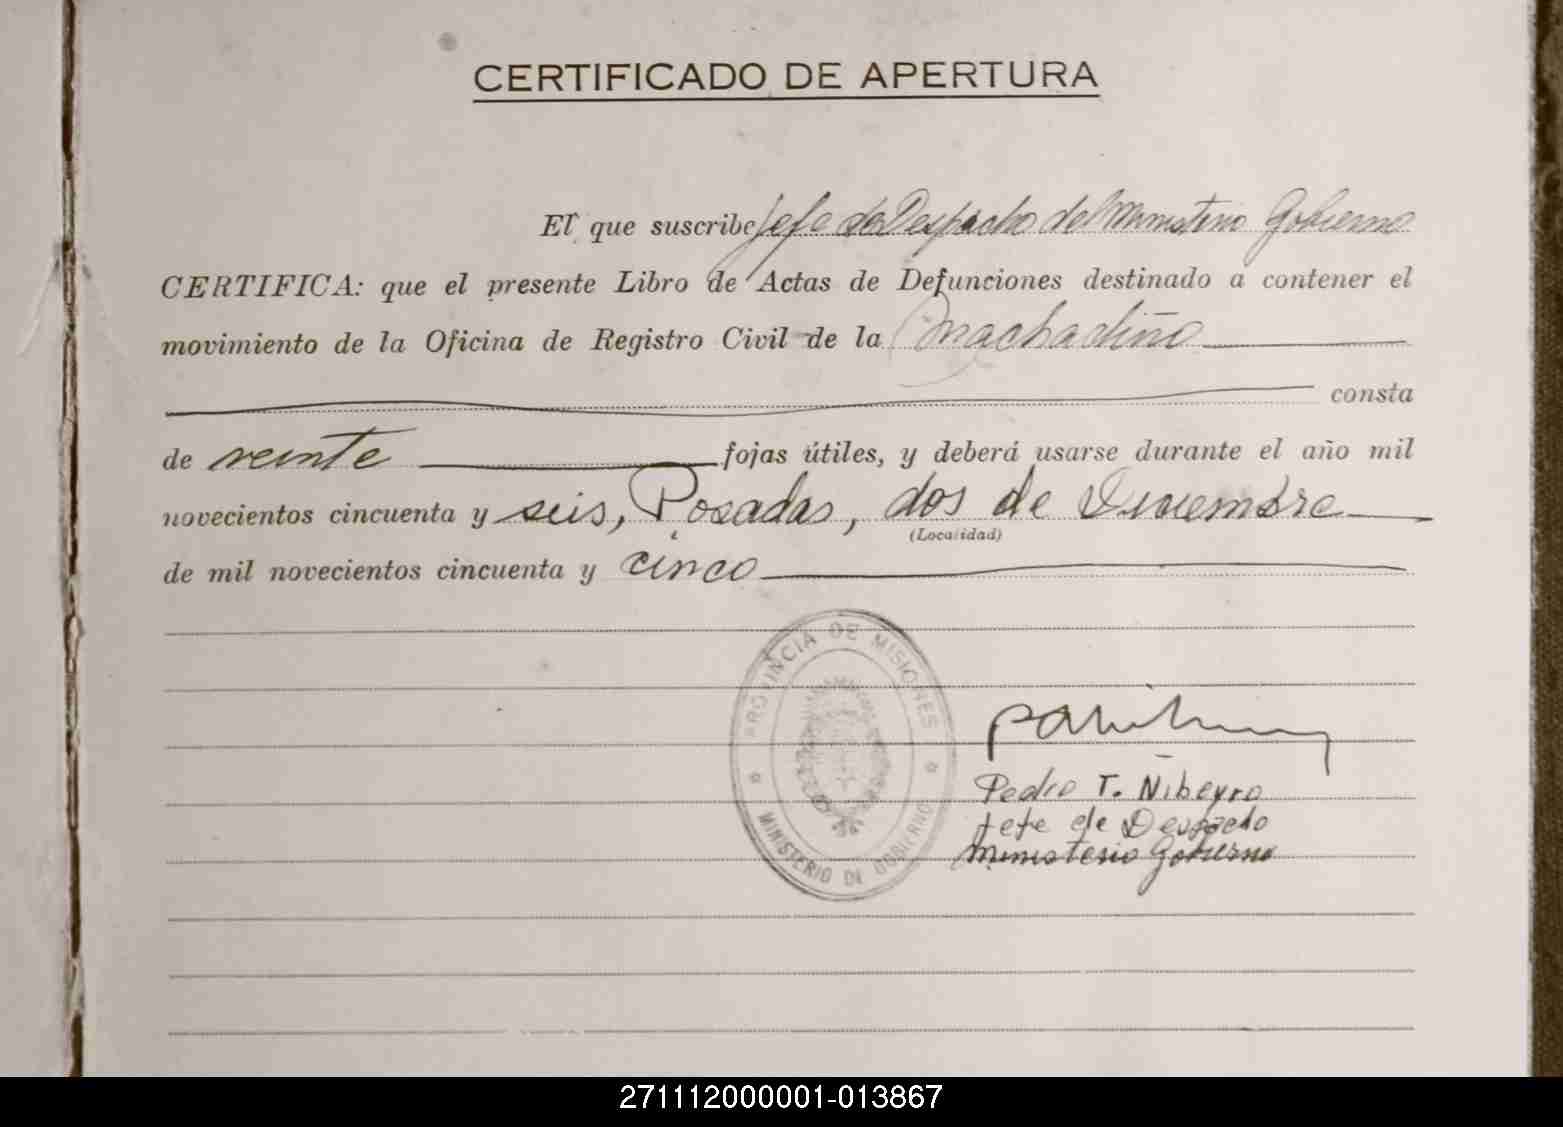 CERTIFICADO DE APERTURA
El que suscribe Jefe de Despacho del Ministerio Gobierno
CERTIFICA: que el presente Libro de Actas de Defunciones destinado a contener el
movimiento de la Oficina de Registro Civil de la Machadiño
consta
de veinte fojas útiles, y deberá usarse durante el año mil
novecientos cincuenta y seis, Posadas, dos de Diciembre
(Localidad)
de mil novecientos cincuenta y cinco
PROVINCIA DE MISIONES
MINISTERIO DE GOBIERNO
Pedro T. Ñibeyro
Jefe de Despacho
Ministerio Gobierno
271112000001-013867